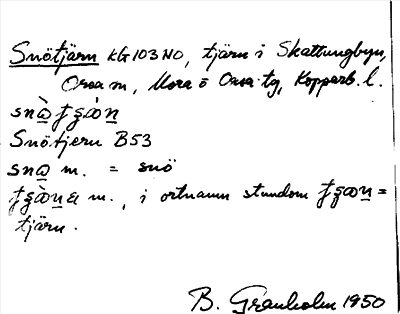 Snötjärn KG 103 NO, tjärn i Skattungbyn,
Orsa m, Mora o Orsa tg, Kopparb. l.
Snötjern B53
m. = snö
m., i ortnamn stundom
tjärn.
B. Granholm 1950